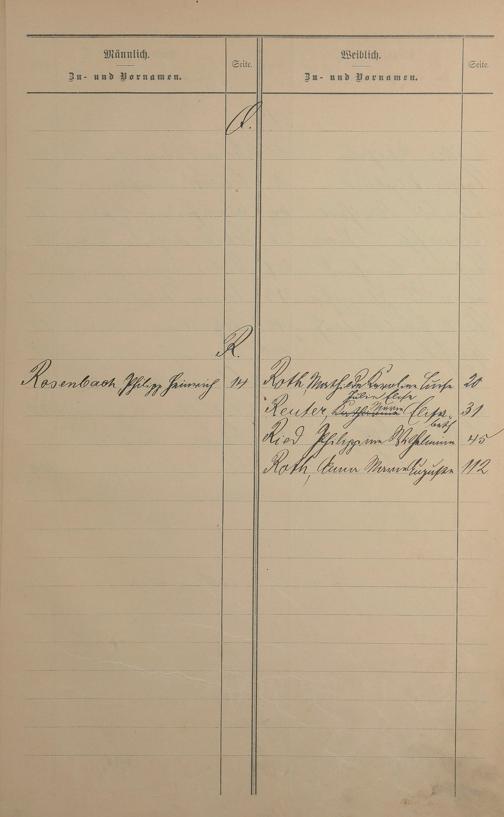 Männlich.
Zu- und Vornamen.
Seite.
Weiblich.
Zu- und Vornamen.
Seite.
Q.
R.
Rosenbach, Philipp Heinrich 14
Roth, Mathilde Karoline Luise 20
Reuter, Elisabeth 31
Ried Philippine Wilhelmine 45
Roth, Anna Marie Auguste 112